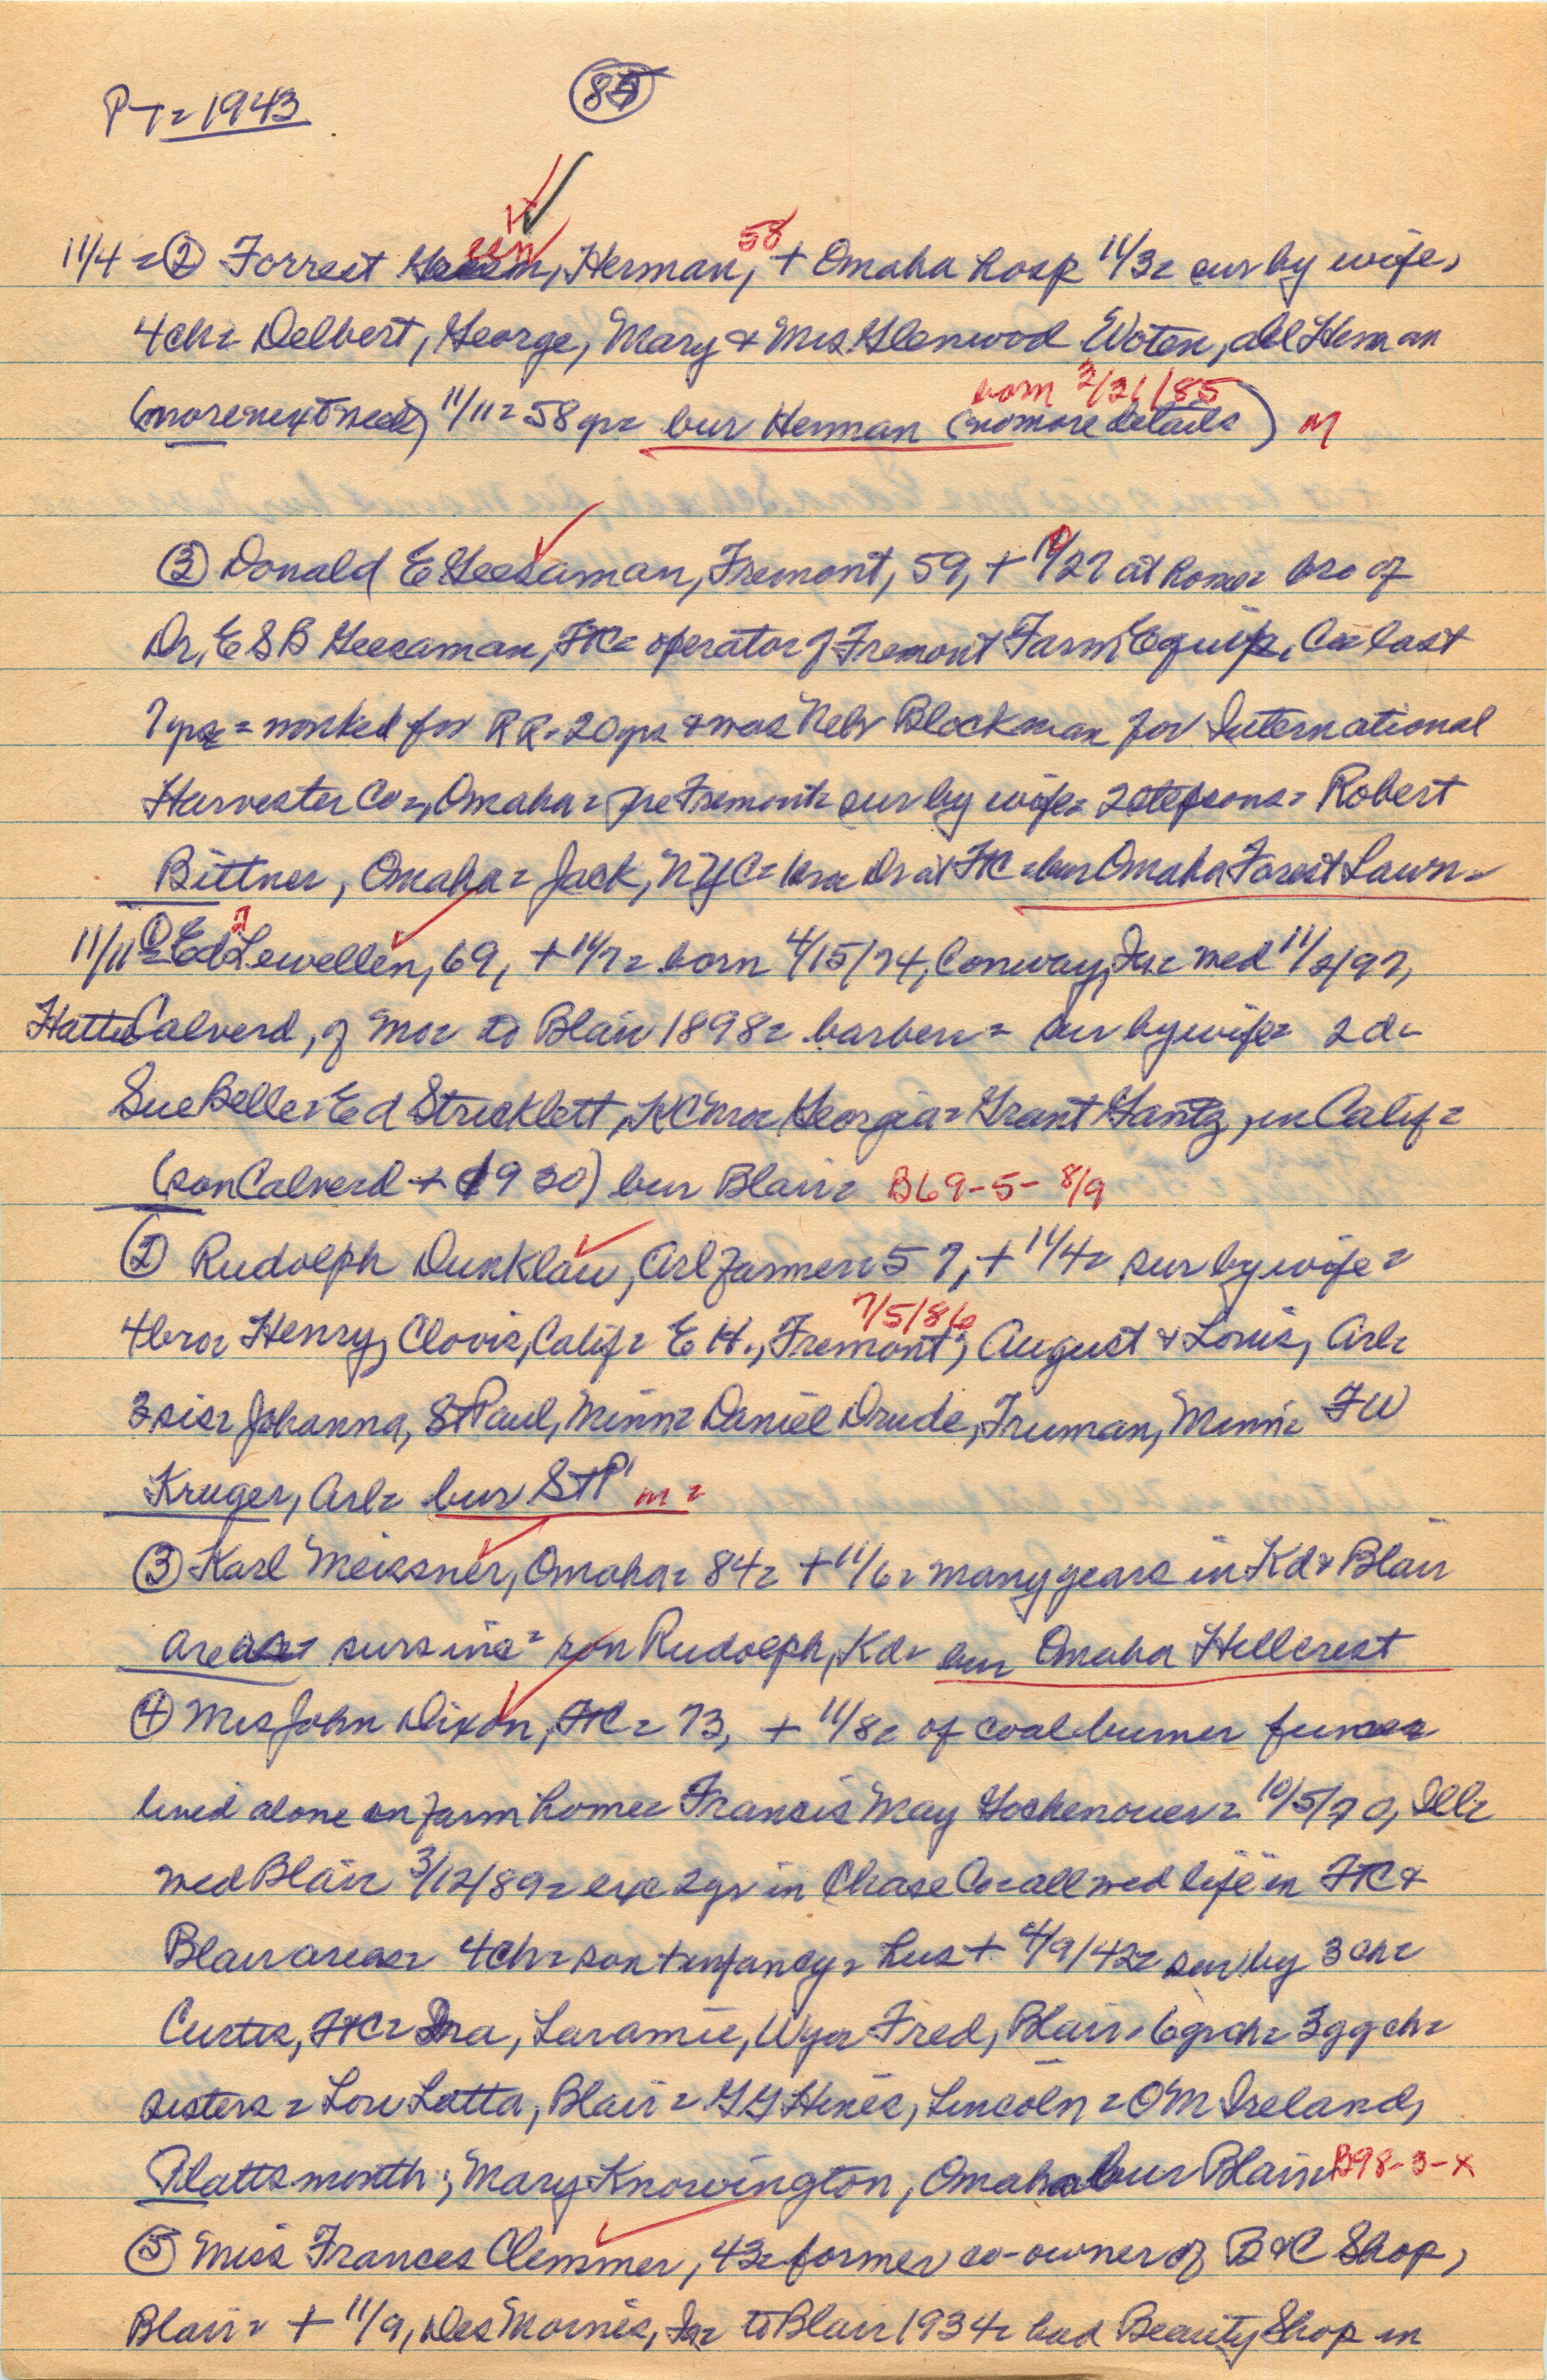 PT = 1943
85
11/4 = ② Forrest Green, Herman, 58, + Omaha hosp 11/3 = sur by wife,
4 ch = Delbert, George, Mary & Mrs. Glenwood Woten, all Herman
born 2/21/85
(more next week) 11/11 = 58 yr = bur Herman (no more details) M
③ Donald E Geesaman, Fremont, 59, + 10/27 at home = bro of
Dr. E S B Geesaman, FtC = operator of Fremont Farm Equip. Co = last
7 yrs = worked for RR. 20 yrs & was Nebr Blockman for International
Harvester Co =, Omaha = pre Fremont = sur by wife = 2 stepsons = Robert
Bittner, Omaha = Jack, NYC = bro Dr at FtC = bur Omaha Forest Lawn =
11/11 = ① Ed Lewellen, 69, + 11/7 = born 4/15/74, Conway, Ia = med 11/2/97,
Hattie Calverd, of Mo = to Blair 1898 = barber = sur by wife = 2 d =
Sue Belle = Ed Stricklett, KC Mo = Georgia = Grant Gantz, in Calif =
(son Calverd + 1930) bur Blair = B69-5-8/9
② Rudolph Dunklau, Arl farmer = 57, + 11/4 = sur by wife =
7/5/86
4 bro = Henry, Clovis, Calif = E H., Fremont; August & Louis, Arl =
3 sis = Johanna, St Paul, Minn = Daniel Drude, Truman, Minn = F W
Kruger, Arl = bur St P' m =
③ Karl Meissner, Omaha = 84 = + 11/6 = many years in Kd & Blair
areas = survs inc = son Rudolph, Kd = bur Omaha Hillcrest
④ Mrs John Dixon, FtC = 73, + 11/8 = of coal burner fumes =
lived alone on farm home = Francis May Gochenouer = 10/5/70, Ill =
med Blair 3/12/89 = exc 2 yr in Chase Co = all med life in FtC &
Blair areas = 4 ch = son + infancy = hus + 4/9/42 = sur by 3 ch =
Curtis, FtC = Ira, Laramie, Wyo = Fred, Blair = 6 gr ch = 3 gg ch =
sisters = Lou Latta, Blair = G G Hines, Lincoln = O M Ireland,
Plattsmouth; Mary Knowington, Omaha bur Blair = B98-3-X
⑤ Miss Frances Clemmer, 43 = former co-owner of B & C Shop,
Blair = + 11/9, Des Moines, Ia = to Blair 1934 = had Beauty Shop in